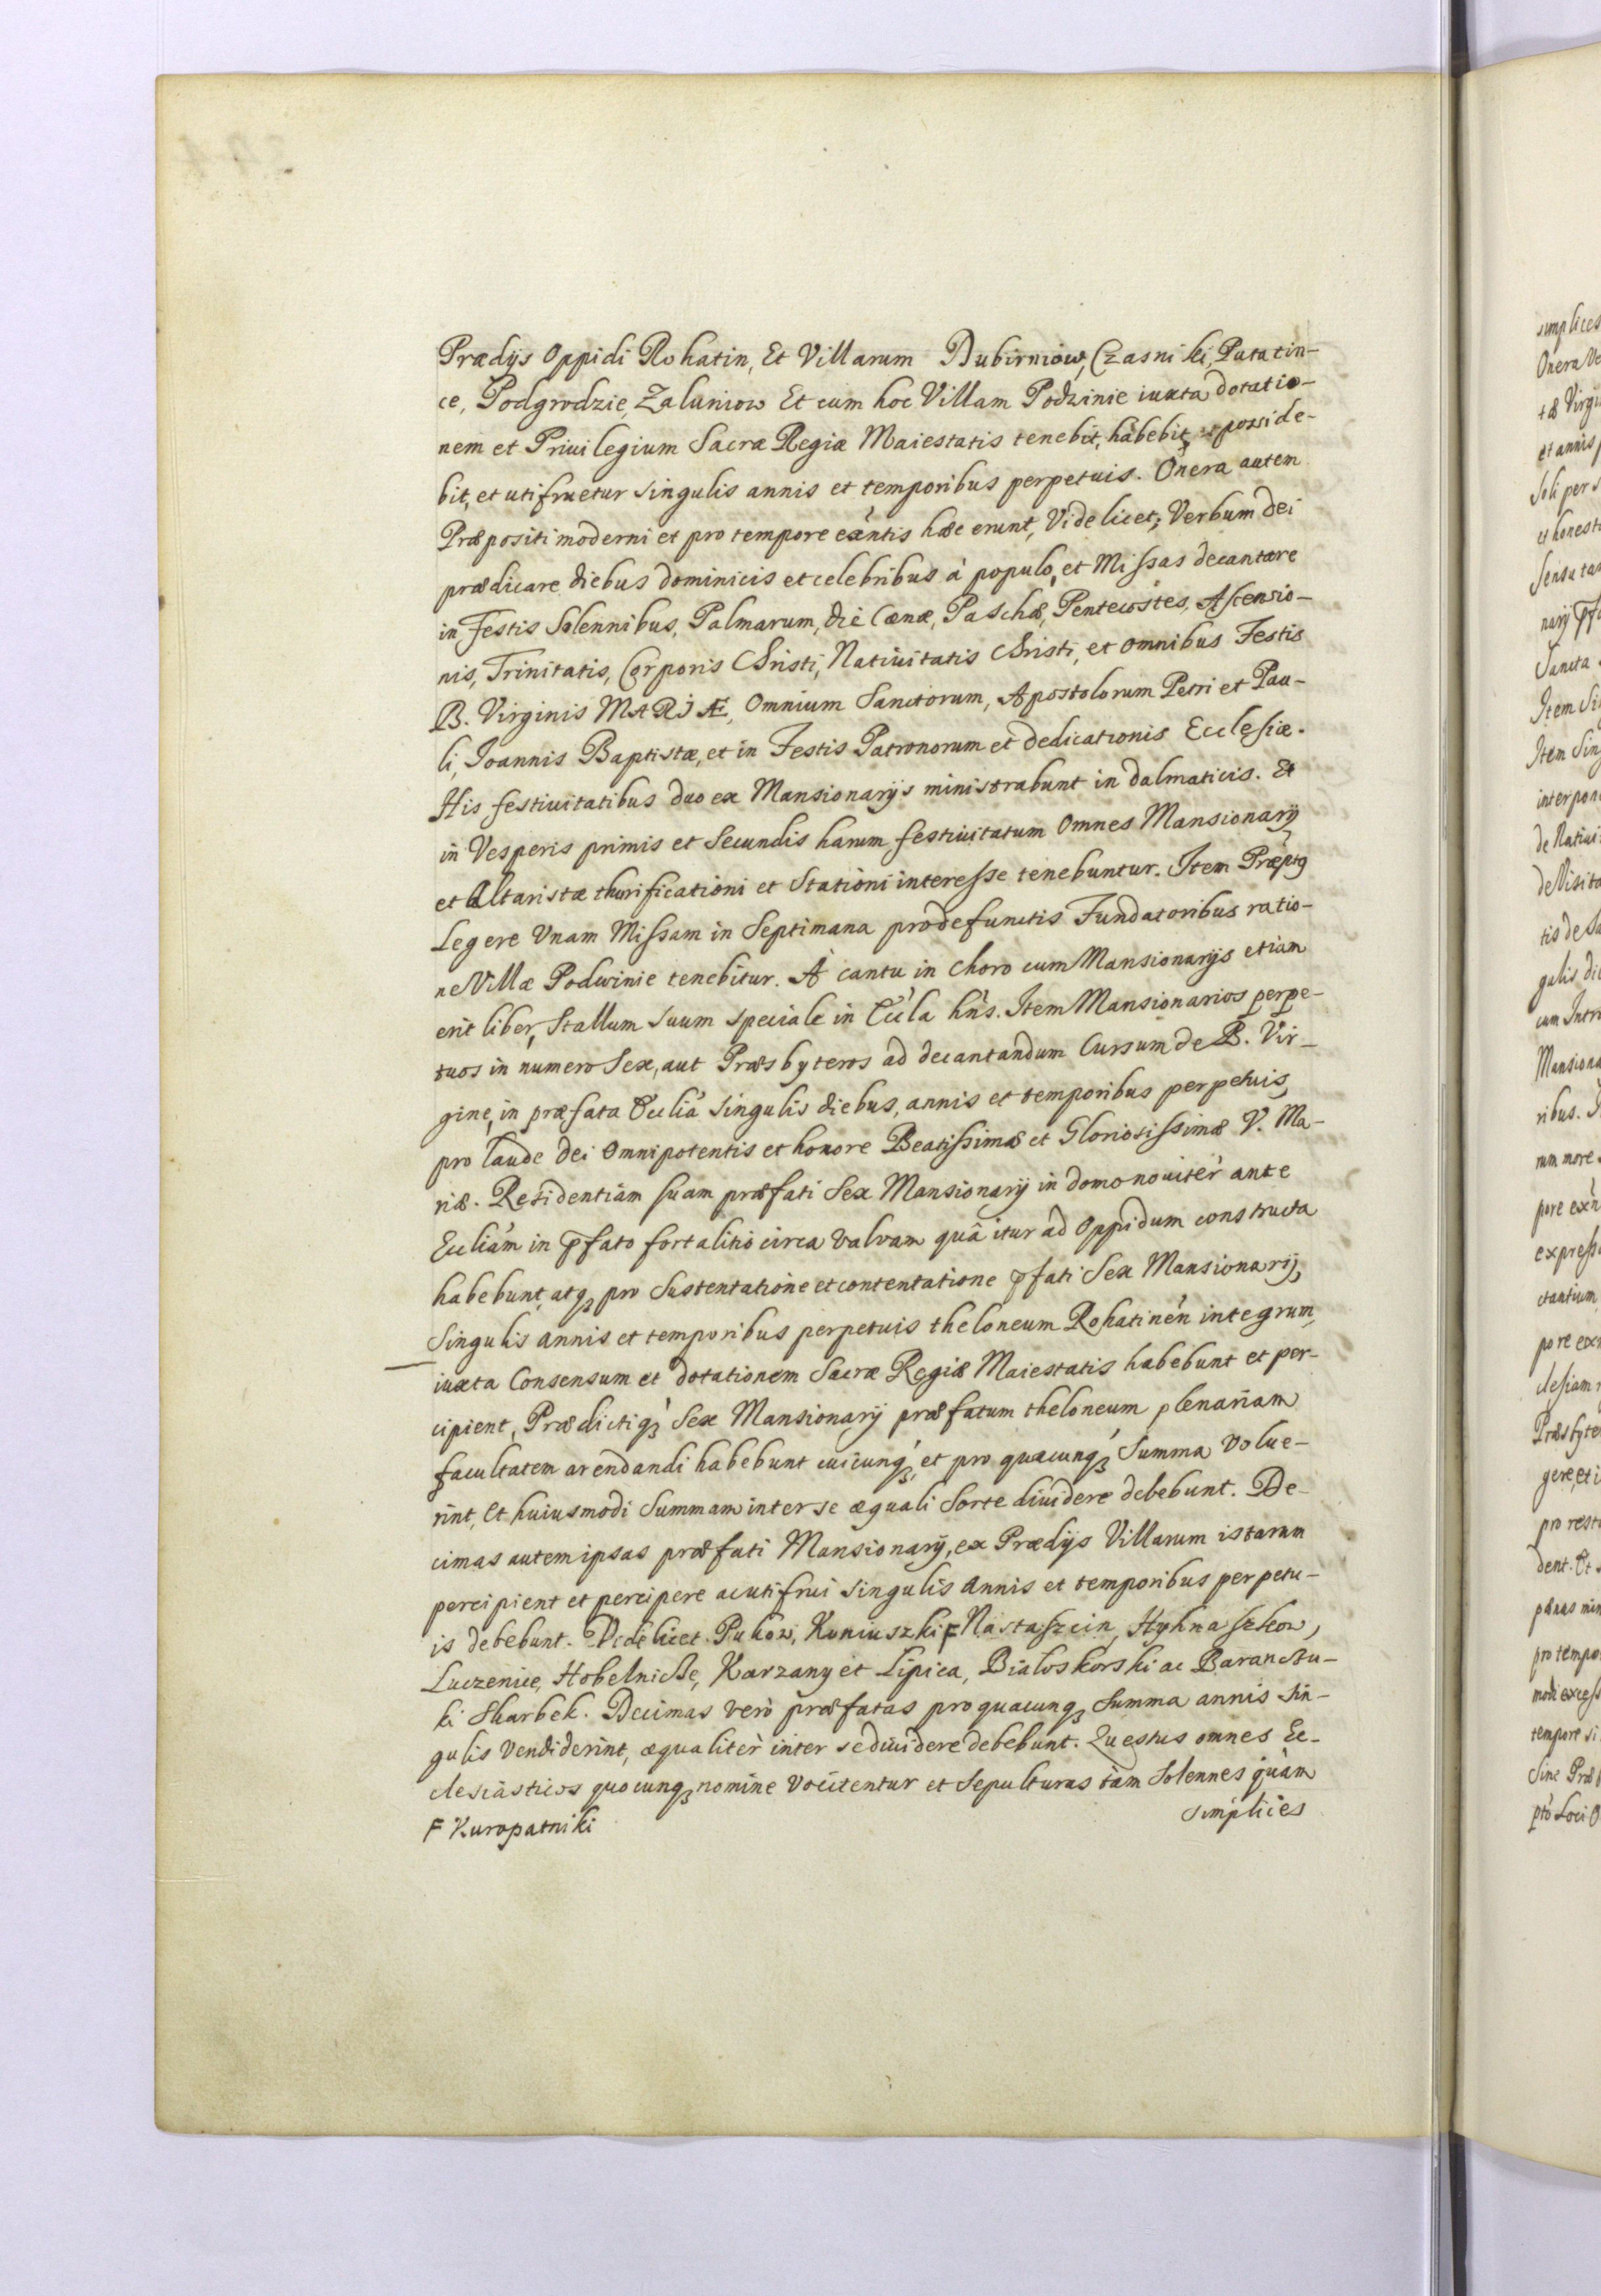 Prædijs Oppidi Rohatin, Et Villarum Dubirniow, Czasniki, Putatin-
ce, Podgrodzie, Zaluniow Et cum hoc Villam Podwinie iuxta dotatio-
nem et Priuilegium Sacræ Regiæ Maiestatis tenebit, habebit, posside-
bit, et utifruetur singulis annis et temporibus perpetuis. Onera autem
Præpositi moderni et pro tempore exñtis hæc erunt, Videlicet; Verbum dei
prædicare diebus dominicis et celebribus à populo, et Missas decantare
in Festis Solennibus, Palmarum, die Cænæ, Paschæ, Pentecostes, Ascensio-
nis, Trinitatis, Corporis Christi, Natiuitatis Christi, et omnibus Festis
B. Virginis MARIÆ, Omnium Sanctorum, Apostolorum Petri et Pau-
li, Joannis Baptistæ, et in Festis Patronorum et dedicationis Ecclesiæ.
His festiuitatibus duo ex Mansionarijs ministrabunt in dalmaticis. Et
in Vesperis primis et Secundis harum festiuitatum Omnes Mansionarij
et Altaristæ thurificationi et Stationi interesse tenebuntur. Item Præptg
Legere Vnam Missam in Septimana pro defunctis Fundatoribus ratio-
ne Villæ Podwinie tenebitur. A cantu in choro cum Mansionarijs etiam
erit liber, Stallum suum speciale in Ecc̃la hñs. Item Mansionarios perpe-
tuos in numero Sex, aut Præsbyteros ad decantandum Cursum de B. Vir-
gine, in præfata Eccliã singulis diebus, annis et temporibus perpetuis,
pro laude dei Omnipotentis et honore Beatissimæ et Gloriosissimæ V. Ma-
riæ. Residentiam suam præfati Sex Mansionarij in domo nouiter ante
Eccliãm in p̄fato fortalitio circa valvam quâ itur ad Oppidum constructa
habebunt, atq₃ pro Sustentatione et contentatione p̄fati Sex Mansionarij,
Singulis annis et temporibus perpetuis theloneum Rohatinẽn integrum,
iuxta Consensum et dotationem Sacræ Regiæ Maiestatis habebunt et per-
cipient, Prædictiq₃ Sex Mansionarij præfatum theloneum plenariam
facultatem arendandi habebunt cuicunq₃, et pro quacunq₃ Summa volue-
rint, Et huiusmodi Summam inter se æquali Sorte diuidere debebunt. De-
cimas autem ipsas præfati Mansionarij, ex Prædijs Villarum istarum
percipient et percipere ac utifrui singulis annis et temporibus perpetu-
is debebunt. Videlicet. Pukow, Koniuszki F Nastaszcin, Hyhnaszkow,
Luczenice, Hobelniche, Karzany et Lipica, Bialoskorski ac Baranchu-
ki Skarbek. Decimas verò præfatas pro quacunq₃ Summa annis sin-
gulis vendiderint, æqualitèr inter se diuidere debebunt. Quæstus omnes Ec-
clesiasticos quocunq₃ nomine vocitentur et Sepulturas tam Solennes quàm
simplices
F Kuropatniki